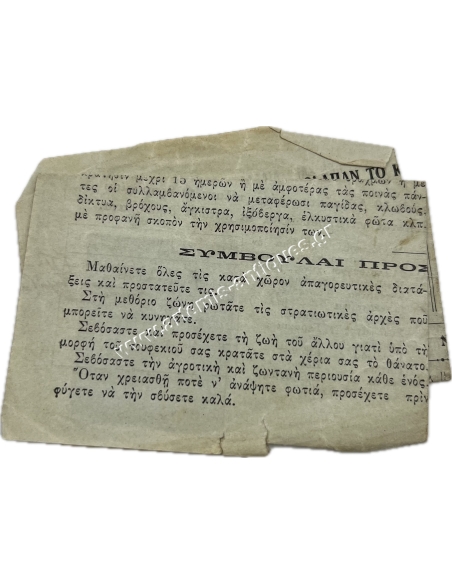 ΑΠΑΝ ΤΟ Κ
κράτησιν μέχρι 15 ἡμερῶν ἢ μὲ ἀμφοτέρας τὰς ποινὰς πάν-
τες οἱ συλλαμβανόμενοι νὰ μεταφέρωσι παγίδας, κλωβούς,
δίκτυα, βρόχους, ἄγκιστρα, ἰξόβεργα, ἑλκυστικὰ φῶτα κλπ.
μὲ προφανῆ σκοπὸν τὴν χρησιμοποίησίν των.
ΣΥΜΒΟΥΛΑΙ ΠΡΟΣ
Μαθαίνετε ὅλες τὶς κατὰ χῶρον ἀπαγορευτικὲς διατά-
ξεις καὶ προστατεῦτε τις.
Στὴ μεθόριο ζώνη ρωτᾶτε τὶς στρατιωτικὲς ἀρχὲς ποῦ
μπορεῖτε νὰ κυνηγᾶτε.
Σεβόσαστε καὶ προσέχετε τὴ ζωὴ τοῦ ἄλλου γιατὶ ὑπὸ τὴ
μορφὴ τοῦ τουφεκιοῦ σας κρατᾶτε στὰ χέρια σας τὸ θάνατο.
Σεβόσαστε τὴν ἀγροτικὴ καὶ ζωντανὴ περιουσία κάθε ἑνός.
Ὅταν χρειασθῇ ποτὲ ν' ἀνάψητε φωτιά, προσέχετε πρὶν
φύγετε νὰ τὴν σβύσετε καλά.